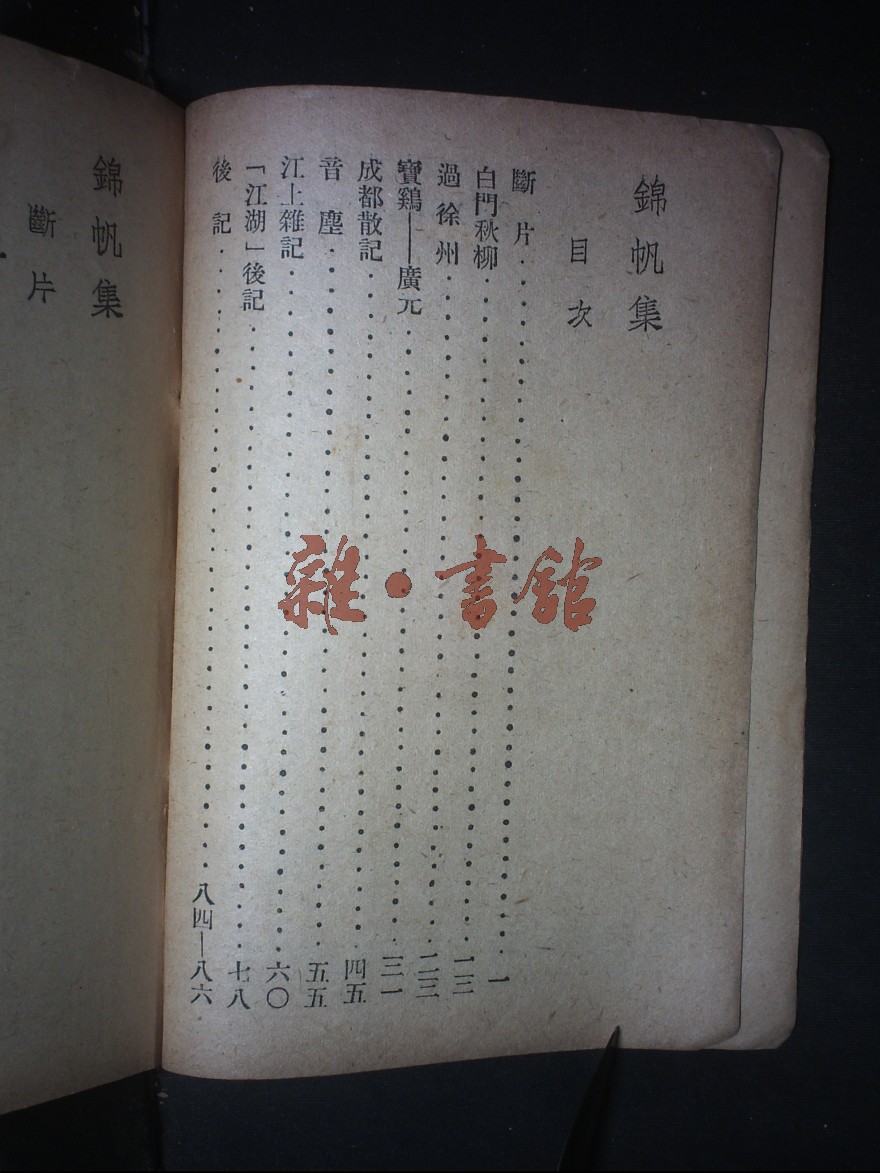 錦帆集
目次
斷片‧‧‧‧‧‧‧‧‧‧‧‧‧‧‧‧一
白門秋柳‧‧‧‧‧‧‧‧‧‧‧‧‧‧‧‧一三
過徐州‧‧‧‧‧‧‧‧‧‧‧‧‧‧‧‧二三
寶鷄——廣元‧‧‧‧‧‧‧‧‧‧‧‧‧‧‧‧三一
成都散記‧‧‧‧‧‧‧‧‧‧‧‧‧‧‧‧四五
音塵‧‧‧‧‧‧‧‧‧‧‧‧‧‧‧‧五五
江上雜記‧‧‧‧‧‧‧‧‧‧‧‧‧‧‧‧六〇
「江湖」後記‧‧‧‧‧‧‧‧‧‧‧‧‧‧‧‧七八
後記‧‧‧‧‧‧‧‧‧‧‧‧‧‧‧‧八四—八六
錦帆集
斷片
雜·書館